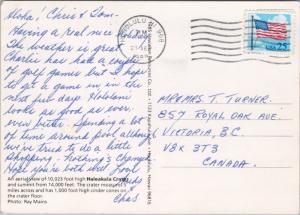 Aloha, Chris & Tom.
Having a real nice holiday
The weather is great.
Charlie has had a couple
of golf games but I hope
to get a game in in the
next few days. Waialani
looks as good as ever,
even better. Spending a lot
of time around pool although
we've tried to do a little
shopping. Nothing's changed
Hope you're both well
Chas
An aerial view of 10,023 foot high Haleakala Crater
and summit from 14,000 feet. The crater measures
miles across and has 1,000 foot high cinder cones on
the crater floor.
Photo: Ray Mains
HONOLULU HI 968
USA 25
MR & MRS T. TURNER.
857 ROYAL OAK AVE.
VICTORIA, BC
V8X 3T3
CANADA.